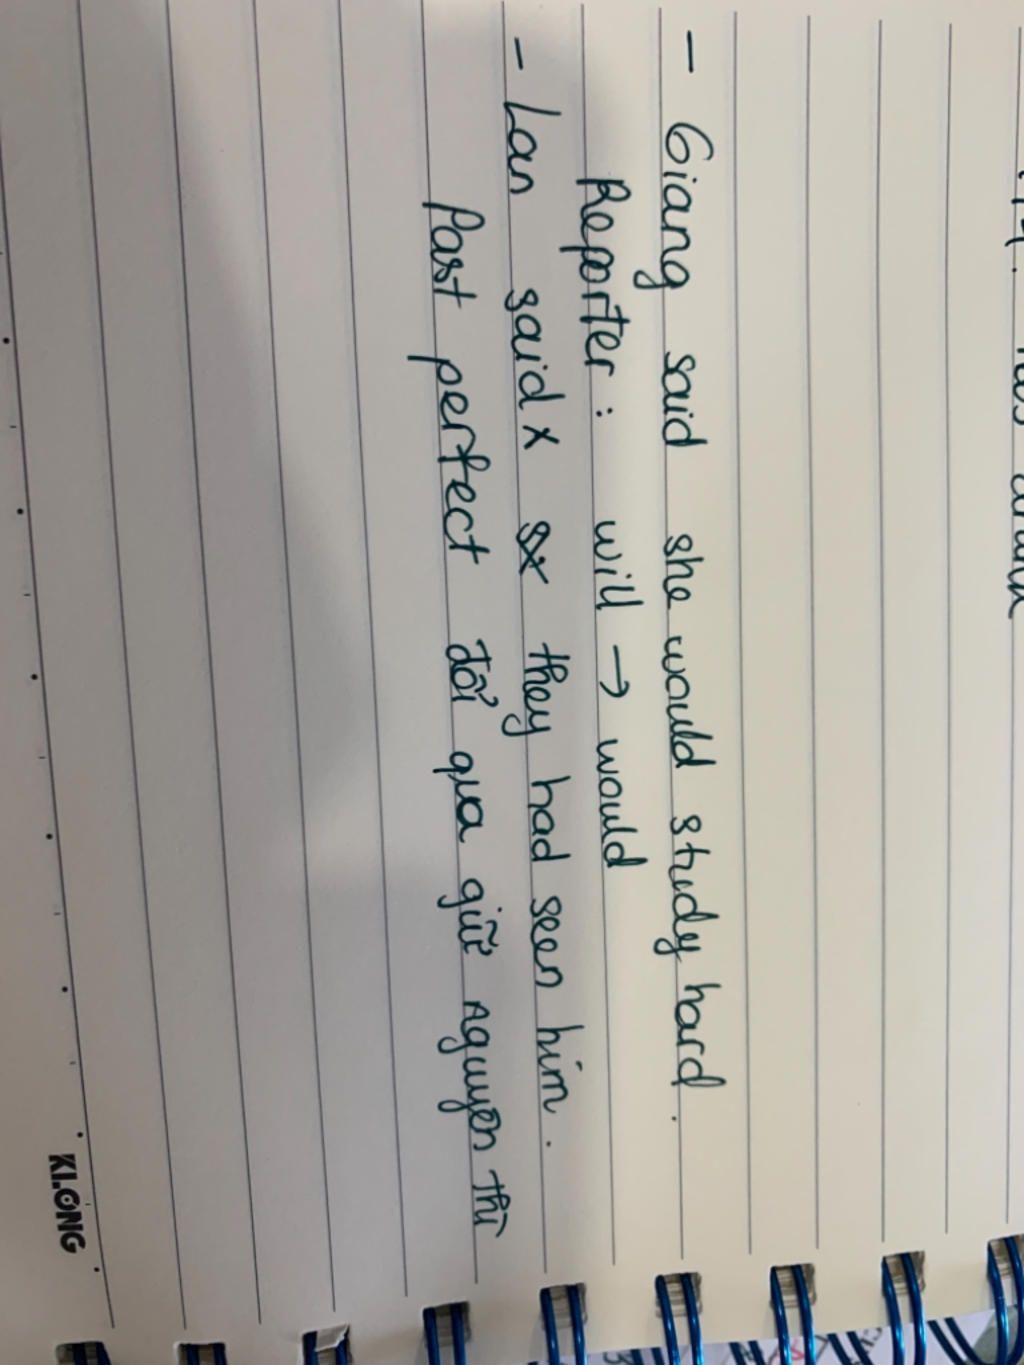 - Giang said she would study hard.
Reporter: will → would
- Lan said x sx they had seen him.
Past perfect đổi qua giữ nguyên thì
KLONG